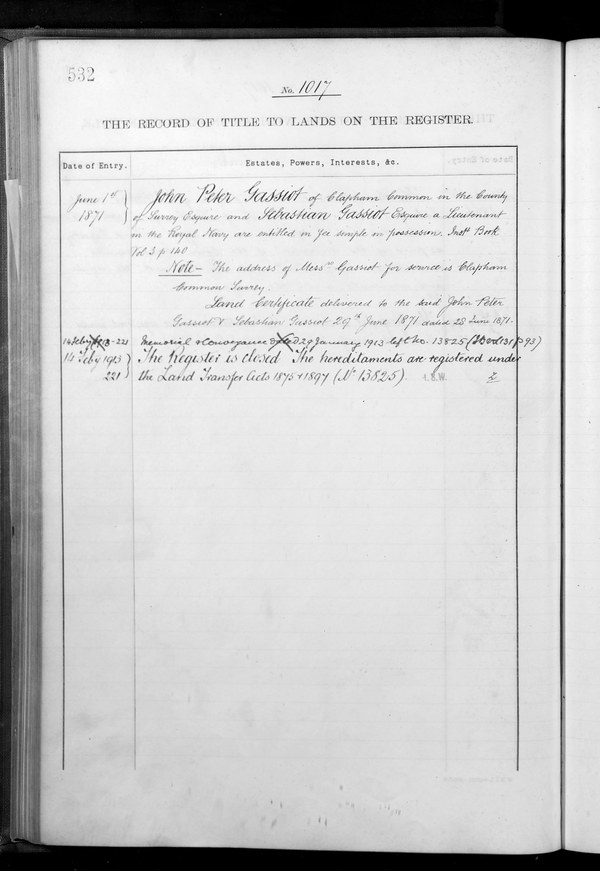 532
No. 1017
THE RECORD OF TITLE TO LANDS ON THE REGISTER.
Date of Entry.
Estates, Powers, Interests, &c.
June 1st
1871
John Peter Gassiot of Clapham Common in the County
of Surrey Esquire and Sebastian Gassiot Esquire a Lieutenant
in the Royal Navy are entitled in fee simple in possession. Inst. Book
Vol 3 p 140
Note - The address of Messrs Gassiot for service is Clapham
Common Surrey
Land Certificate delivered to the said John Peter
Gassiot & Sebastian Gassiot 29th June 1871 dated 28 June 1871.
14 Feby 1913 - 221
Memorial of Conveyance dated 29 January 1913 No. 13825 (131 p 93)
14 Feby 1913
221
The Register is closed The hereditaments are registered under
the Land Transfer Acts 1875 & 1897 (No 13825).